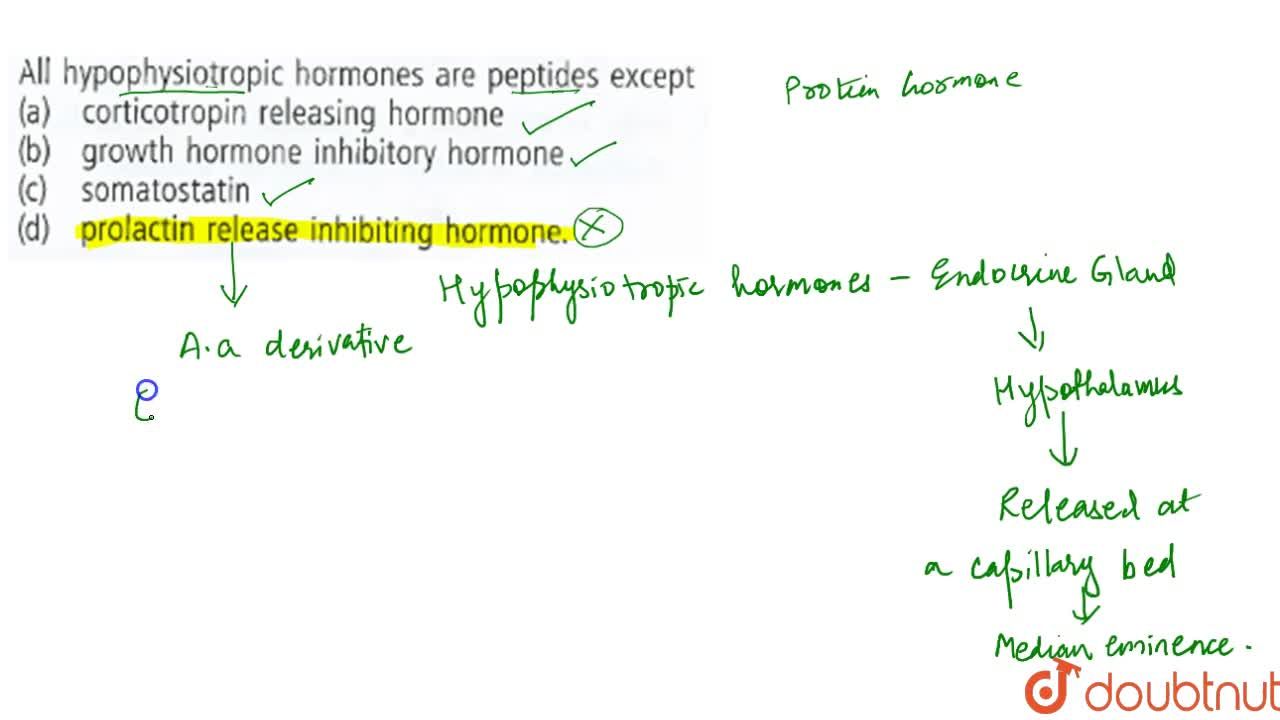 All hypophysiotropic hormones are peptides except
(a) corticotropin releasing hormone
(b) growth hormone inhibitory hormone
(c) somatostatin
(d) prolactin release inhibiting hormone.
Protein hormone
Hypophysiotropic hormones - Endocrine Gland
A.a derivative
Hypothalamus
Released at
a capillary bed
Median eminence.
doubtnut